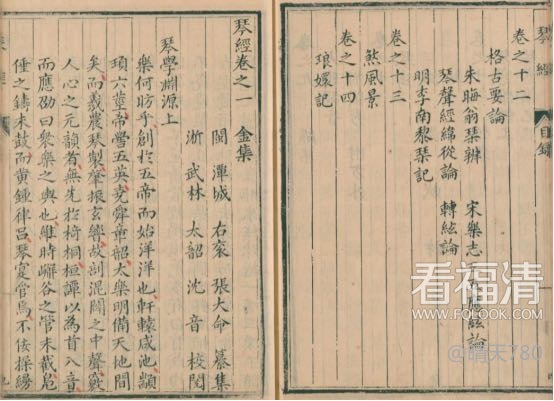 琴經
目錄
卷之十二
格古要論
朱晦翁琴辨 宋樂志 應絃論
琴聲經緯從論 轉絃論
明李南黎琴記
卷之十三
煞風景
卷之十四
琅嬛記
琴經卷之一 金集
閩 潭城 右袞 張大命 纂集
浙 武林 太韶 沈音 校閱
琴學淵源上
樂何昉乎創於五帝而始洋洋也軒轅咸池顓
頊六莖帝嚳五英堯舜章韶太樂明備天地間
矣而羲農琴製肇振玄響故剖混闢之中聲竅
人心之元韻者無先於椅桐桓譚以為首八音
而應劭曰衆樂之輿也維時嶰谷之管未截鳧
倕之鑄未鼓而黃鍾律呂琴寔管焉不佞操縵
看福清
WWW.FOLOOK.COM
@晴天780